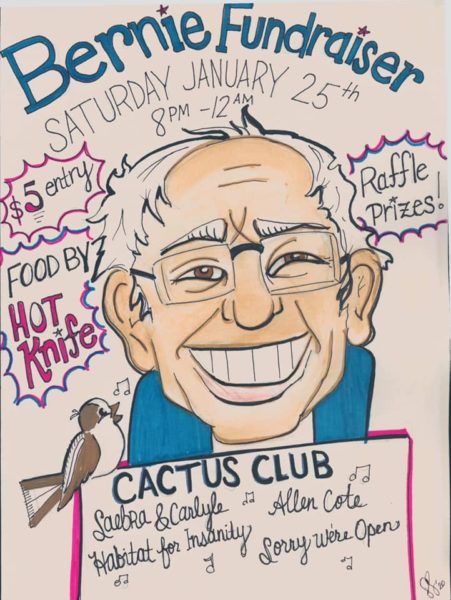 Bernie Fundraiser
SATURDAY JANUARY 25th
8PM - 12AM
$5 entry
Raffle
Prizes!
FOOD BY
HOT
Knife
CACTUS CLUB
Saebra & Carlyle
Allen Cote
Habitat for Insanity
Sorry We're Open
'20